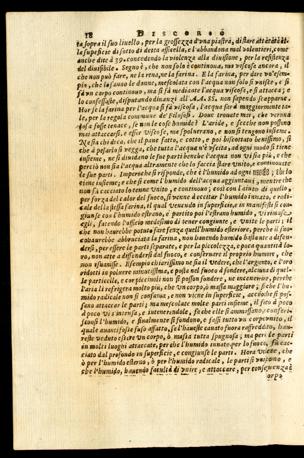 18 DISCORSO
ta sopra il suo livello, per la grossezza d'una piastra, di stare
la superficie di sotto di detta assicella, e l'abbandona mal volentieri, come
anche dite a 39. concedendo la violenza alla divisione, per la resistenza
del divisibile. Segno è, che non solo è continova, ma viscosa ancora, il
che non può fare, ne la rena, ne la farina. E la farina, per dire un'esempio,
che la sanno le donne, nestata con l'acqua, si fa viscosa, e si
fa un corpo continovo, ma si fà mediante l'acqua viscosa, e sì attacca; e
lo confessaste, disputando dinanzi all A.A.SS. non sapendo scapparne.
Hor se la farina per l'acqua si fà viscosa, l'acqua sarà maggiormente tale,
per la regola commune de' Filosofi. Dove trovate mai, che veruna
cosa fusse tenace, se non le fosse humido? L'aride, e secche non possono
mai attaccarsi, e esser viscose, ma spolverano, e non si tengono insieme.
Ne sia chi dica, che il pane fatto, e cotto, e poi biscottato benissimo, si
che à pesarlo si vegga, che tutta l'acqua n'è uscita, ad ogni modo si tiene
insieme, ne si dividano le sue parti benche l'acqua non visia più, e che
perciò non sia l'acqua altramente che lo faccia stare unito, e continovate
le sue parti. Imperoche si risponde, che è l'humido ad ogni modo, che lo
tiene insieme; e che sì come l'humido dell'acqua aggiuntavi, mentre che
non fu cacciato lo tenne unito, e continovo; così con l'aiuto di quello,
per forza del calor del fuoco, si venne à eccitar l'humido innato, e naturale
della istessa farina, il qual venendo in superficie, et manifestosi congiunse
con l'humido esterno, è partito poi l'esterno humido, v'rimase
egli, facendo l'ufficio medesimo di tener congiunte, e unite le parti; il
che non harebbe potuto fare senza quell'humido esteriore, perche il fuoco
haurebbe abbruciata la farina, non havendo humido bastante a difendersi,
per essere le parti separate, e per la piccolezza, poca quantità loro,
non atte a difendersi dal fuoco, e conservare il proprio humore, che
non svanisse. Essempio chiarissimo ne sia il vedere, che l'argento, e l'oro
ridotti in polvere minutissima, e posta nel fuoco à fondere, alcune di quelle
particelle, e corpicciuoli non si possan fondere, ne incenerire, perche
l'aria li refrigera molto più, che un corpo, ò massa maggiore; si che l'humido
radicale non si consuma, e non viene in superficie, accioche si possano
attaccar le parti; ma mescolate molte parti insieme, il foco à poco
à poco vi s'insinua, e intenerendole, fa che elle si ammassano, conferiscansi
l'humido, e finalmente si fondano, e facci tutto un corpo unito, il
quale manifesto fuso affatto, se l'haueste cavato fuora raffreddato, haureste
veduto essere un corpo, ò massa tutta spugnosa; ma però le parti
in molti luoghi attaccate, per che l'humido innato per lo fuoco, fù cacciato
dal profondo in superficie, e congiunse le parti. Hora vedete, che
ò per l'humido esterno, ò per l'humido radicale, le parti si uniscono, e
che l'humido, havendo facultà di unire, e attaccare, per conseguenza è